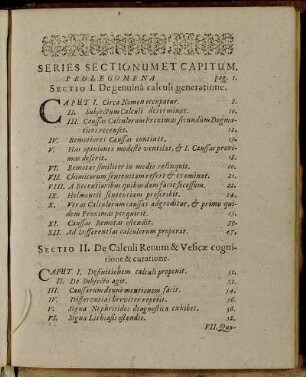 SERIES SECTIONUM ET CAPITUM.
PROLEGOMENA pag. 1.
SECTIO I. De genuinâ calculi generatione.
CAPUT I. Circa Nomen occupatur. 8.
II. Subjectum Calculi determinat. 10.
III. Caussas Calculorum Proximas secundùm Dogmaticos recenset. 12.
IV. Remotiores Caussas continet. 15.
V. Has opiniones modestè ventilat, & I. Caussas proximas deserit. 18.
VI. Remotas similiter in medio relinquit. 20.
VII. Chimicorum sententiam refert & examinat. 21.
VIII. A Recentioribus quibusdam facit secessum. 22.
IX. Helmontii sententiam perscribit. 24.
X. Veras Calculorum caussas adgreditur, & primo quidem Proximas perquirit. 25.
XI. Caussas Remotas ostendit. 39.
XII. Ad Differentias calculorum properat. 47.
SECTIO II. De Calculi Renum & Vesicæ cognitione & curatione.
CAPUT I. Definitionem calculi proponit. 51.
II. De Subjecto agit. 52.
III. Caussarum denuo mentionem facit. 54.
IV. Differentias breviter repetit. 56.
V. Signa Nephritidos diagnostica exhibet. 56.
VI. Signa Lithiasis ostendit.
VII. Quo-